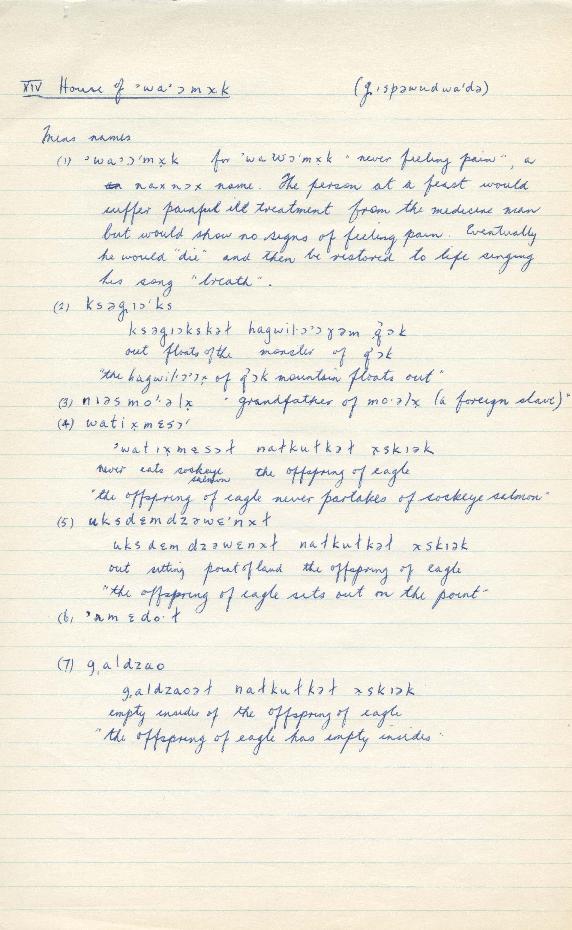 XIV House of ʼwaˑɔmxk (g̣ɪspəwudwaˈdə)
Mens names
(1) ʼwaˑɔˈmxk for ʼwawɔˈmxk "never feeling pain", a
naxnɔx name. The person at a feast would
suffer painful ill treatment from the medicine man
but would show no signs of feeling pain. Eventually
he would "die" and then be restored to life singing
his song "breath".
(2) ksəgɪɔˈks
ksəgɪɔkskəɫ
out floats of the monster of q̓ɔk
"the of q̓ɔk mountain floats out"
(3) nɪəsmoˑəlx̣ "grandfather of moˑəlx̣ (a foreign slave)"
(4) watɪxmɛsɔˈ
ʼwatɪxmɛsɔɫ naɫkuɫkəɫ xskɪək
never eats sockeye salmon the offspring of eagle
"the offspring of eagle never partakes of sockeye salmon"
(5) uksdɛmdzəwɛˈnxɫ
uksdɛm dzəwɛnxɫ naɫkuɫkəɫ xskɪək
out sitting point of land the offspring of eagle
"the offspring of eagle sits out on the point"
(6)
(7) g̣aldzao
g̣aldzaoəɫ naɫkuɫkəɫ xskɪək
empty insides of the offspring of eagle
"the offspring of eagle has empty insides"